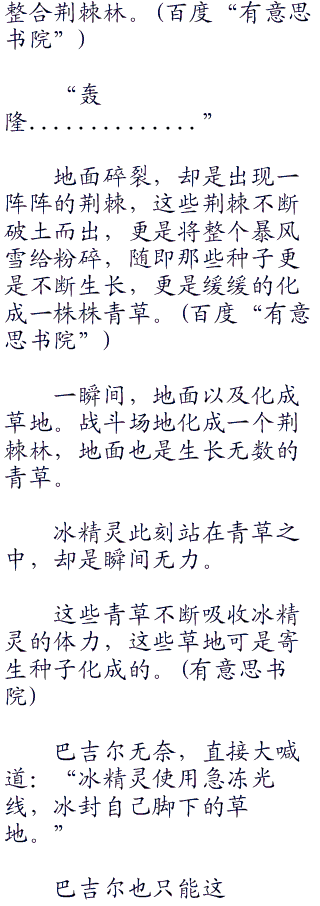 整合荆棘林。(百度“有意思
书院”)
“轰
隆..............”
地面碎裂，却是出现一
阵阵的荆棘，这些荆棘不断
破土而出，更是将整个暴风
雪给粉碎，随即那些种子更
是不断生长，更是缓缓的化
成一株株青草。(百度“有意
思书院”)
一瞬间，地面以及化成
草地。战斗场地化成一个荆
棘林，地面也是生长无数的
青草。
冰精灵此刻站在青草之
中，却是瞬间无力。
这些青草不断吸收冰精
灵的体力，这些草地可是寄
生种子化成的。(有意思书
院)
巴吉尔无奈，直接大喊
道：“冰精灵使用急冻光
线，冰封自己脚下的草
地。”
巴吉尔也只能这